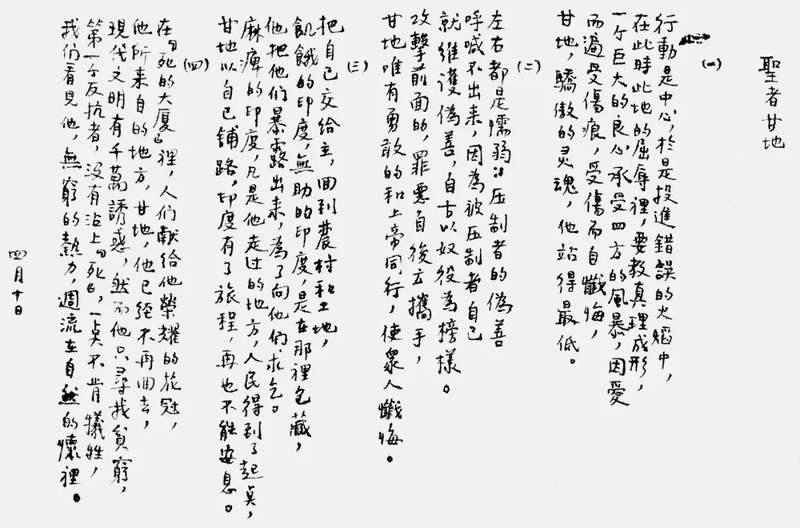 聖者甘地
(一)
行動是中心,於是投進錯誤的火焰中,
在此時此地的屈辱裡,要教真理成形,
一个巨大的良心承受四方的風暴,因爱
而遍受傷痕,受傷而自懺悔,
甘地,驕傲的灵魂,他站得最低。
(二)
左右都是懦弱:压制者的偽善
呼喊不出来,因為被压制者自己
就维護偽善,自古以奴役為榜樣。
攻擊前面的,罪悪自後方攜手,
甘地唯有勇敢的和上帝同行,使眾人懺悔。
(三)
把自己交给主,回到農村和土地,
飢餓的印度,無助的印度,是在那裡包藏,
他把他們暴露出来,為了向他們求乞。
麻痺的印度,凡是他走过的地方,人民得到了起点,
甘地以自己鋪路,印度有了旅程,再也不能安息。
(四)
在『死的大廈』裡,人们献给他榮耀的花冠,
他所来自的地方,甘地,他已經不再回去,
現代文明有千萬誘惑,然而他只尋找貧窮,
第一个反抗者,沒有沾上『死』,一点不肯犧牲,
我们看見他,無窮的熱力,週流在自然的懷裡。
四月十日